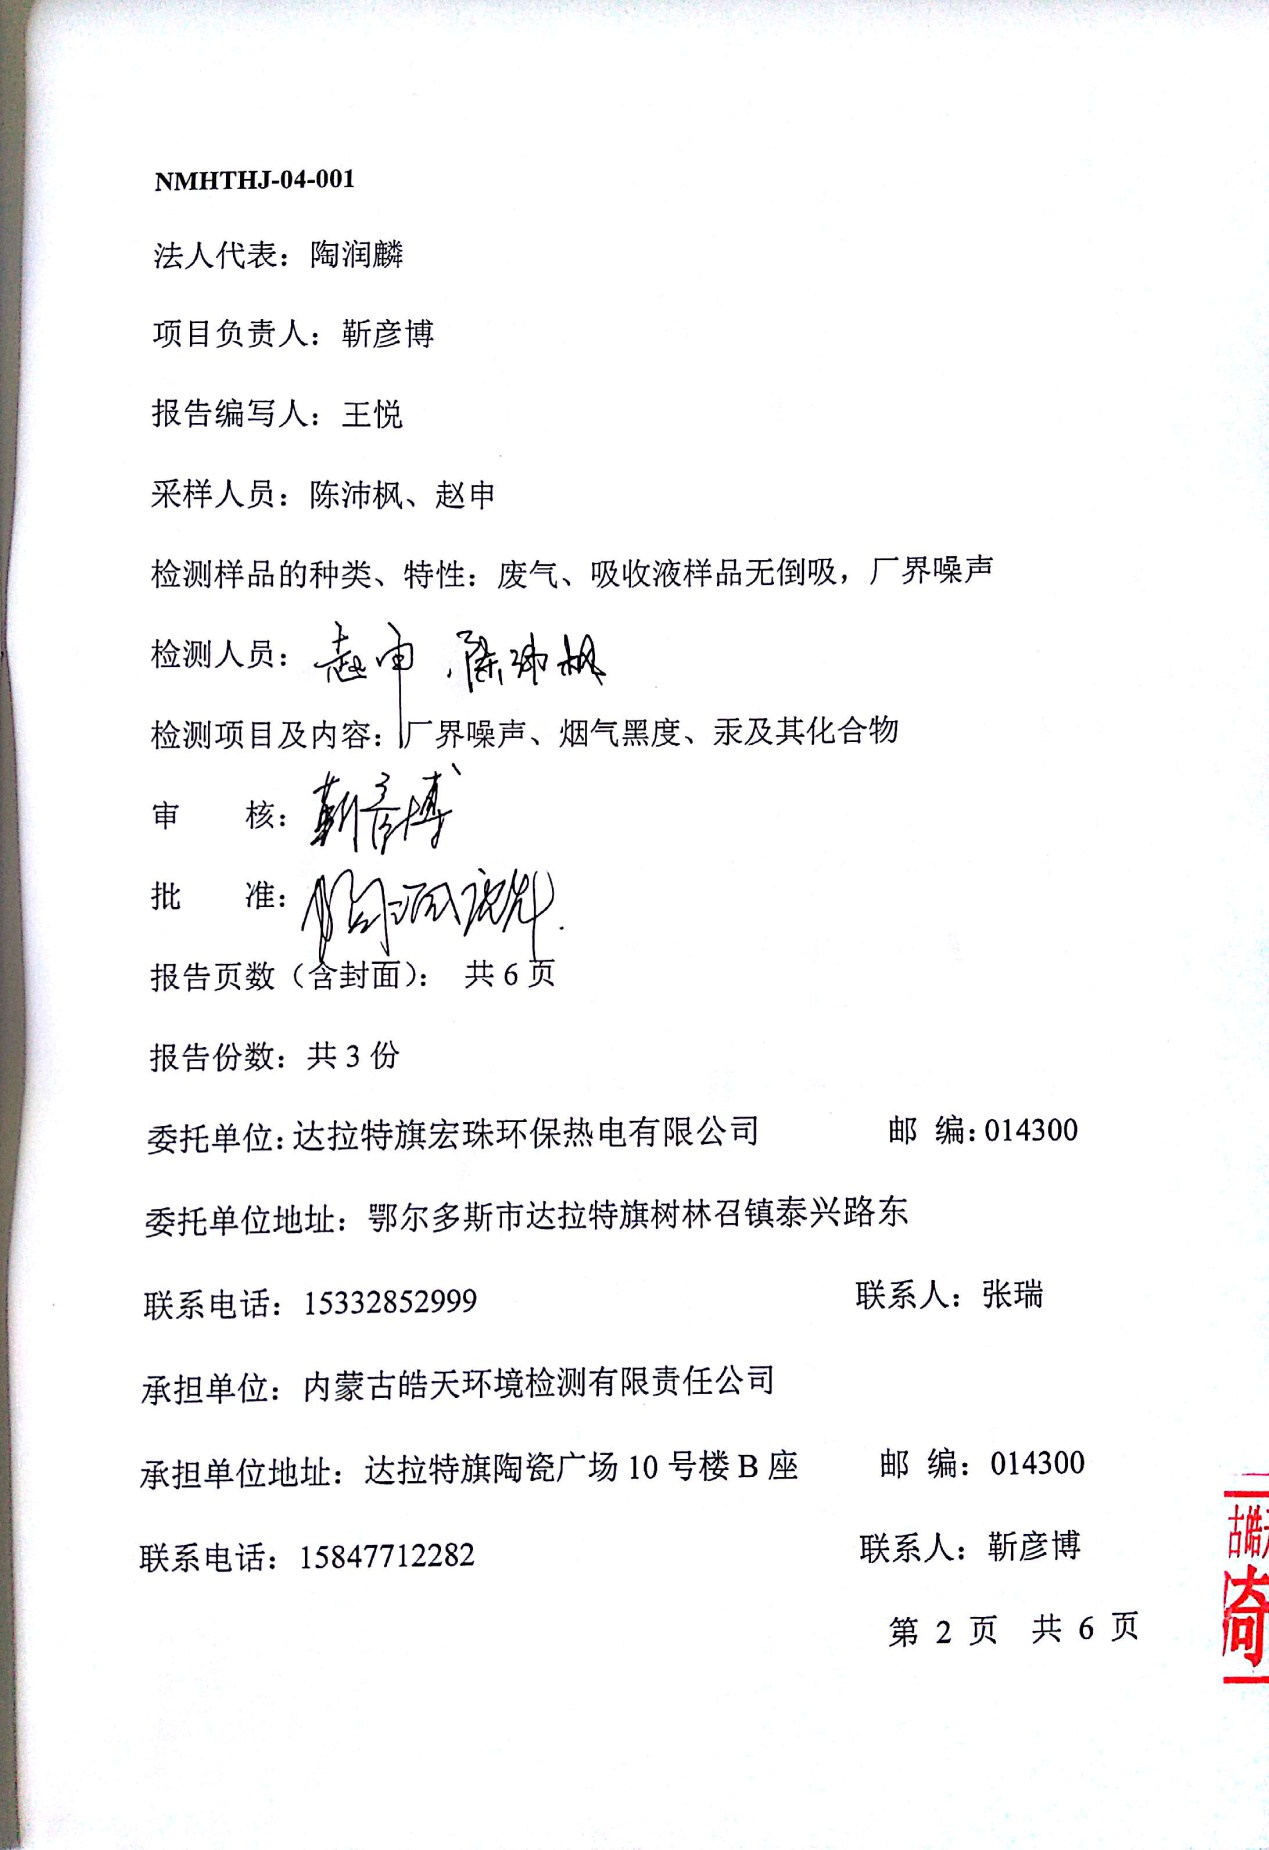 NMHTHJ-04-001
法人代表：陶润麟
项目负责人：靳彦博
报告编写人：王悦
采样人员：陈沛枫、赵申
检测样品的种类、特性：废气、吸收液样品无倒吸，厂界噪声
检测人员：赵申、陈沛枫
检测项目及内容：厂界噪声、烟气黑度、汞及其化合物
审 核：靳彦博
批 准：陶润麟
报告页数（含封面）： 共 6 页
报告份数：共 3 份
委托单位：达拉特旗宏珠环保热电有限公司 邮 编：014300
委托单位地址：鄂尔多斯市达拉特旗树林召镇泰兴路东
联系电话：15332852999 联系人：张瑞
承担单位：内蒙古皓天环境检测有限责任公司
承担单位地址：达拉特旗陶瓷广场 10 号楼 B 座 邮 编：014300
联系电话：15847712282 联系人：靳彦博
古皓天
第 2 页 共 6 页